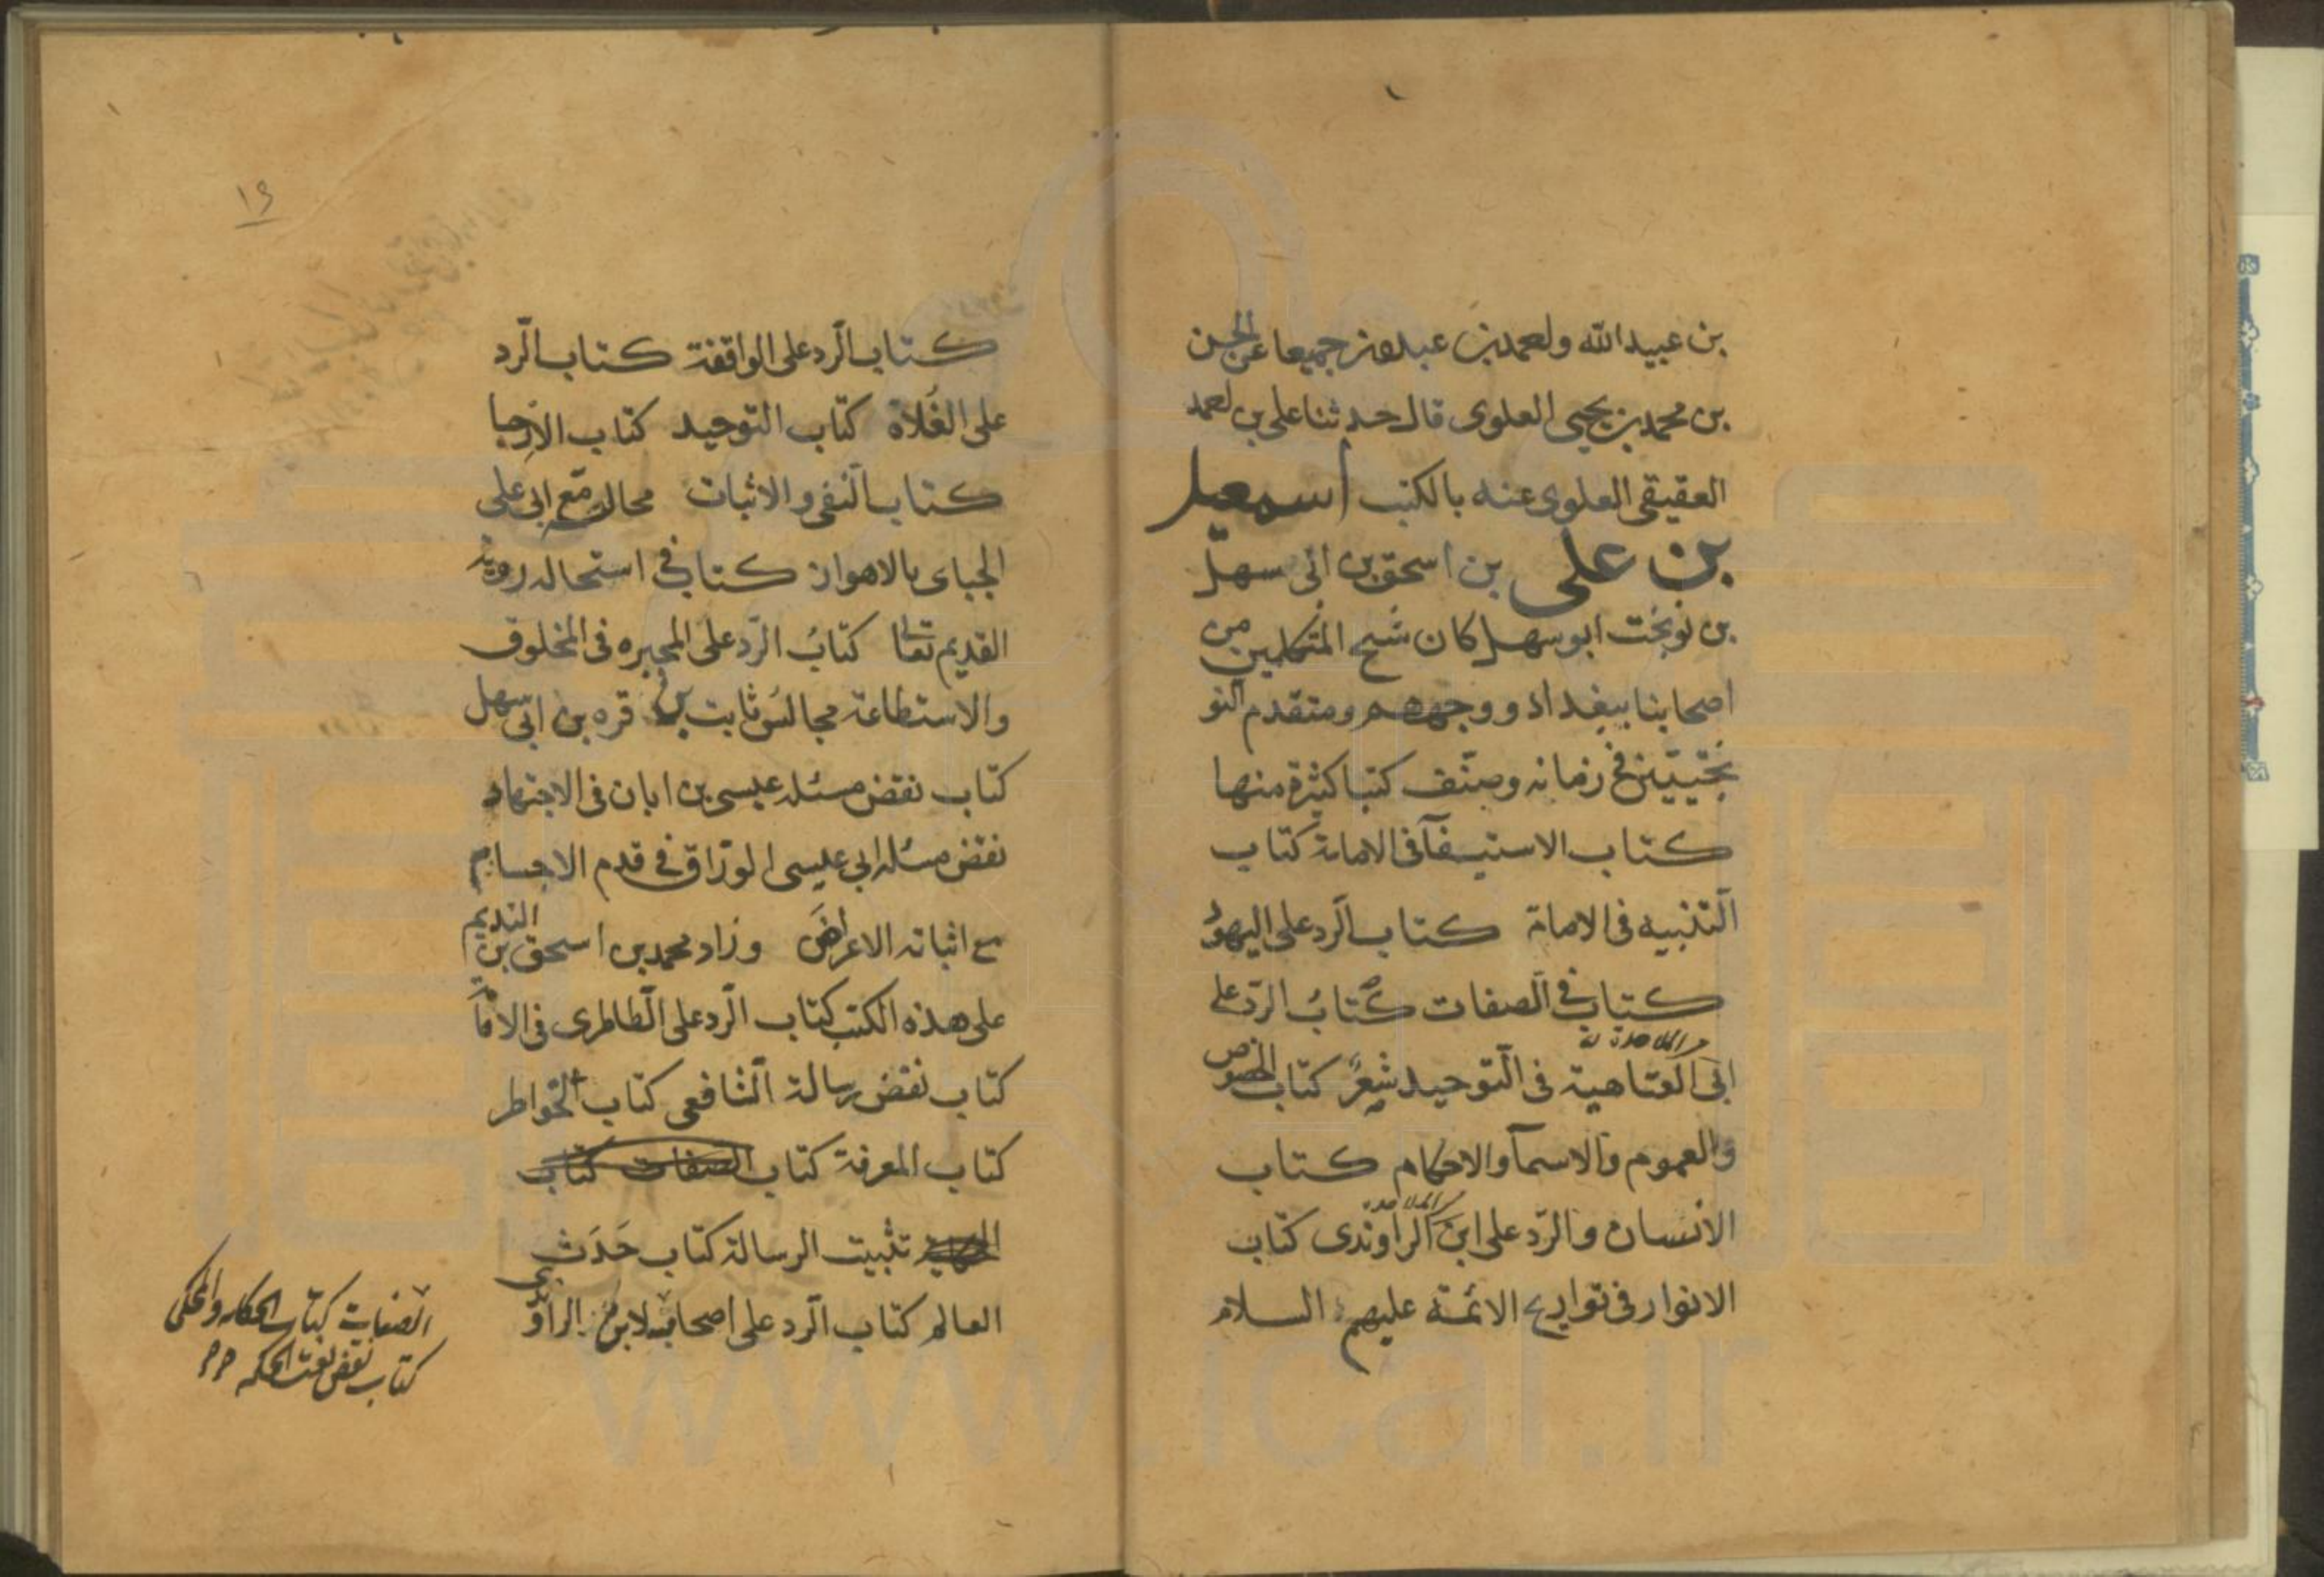 بن عبيدالله واحمد بن عبدون جميعا عن الحسن
بن محمد بن يحيى العلوى قال حدثنا على بن احمد
العقيقى العلوى عنه بالكتب اسمعيل
بن على بن اسحق بن ابى سهل
بن نوبخت ابو سهل كان شيخ المتكلمين من
اصحابنا ببغداد و وجههم ومتقدم النو
بختيين فى زمانه وصنّف كتبا كثيرة منها
كتاب الاستيفآ فى الامامة كتاب
التنبيه فى الامامة كتاب الرد على اليهود
كتاب فى الصفات كتابُ الردّ على
ابى العتاهية فى التوحيد شعرٌ كتاب الخصوص
والعموم والاسمآ والاحكام كتاب
الانسان والردّ على ابن الراوندى كتاب
الانوار فى تواريخ الائمة عليهم السلام
١٩
كتاب الرد على الواقفة كتاب الرد
على الغُلاة كتاب التوحيد كتاب الارجا
كتاب النفى والاثبات مجالس مع ابى على
الجباى بالاهواز كتاب فى استحاله روية
القديم تعالى كتابُ الردّ على المجبره فى المخلوق
والاستطاعة مجالس ثابت بن قره بن ابى سهل
كتاب نقض مسئله عيسى بن ابان فى الاجتهاد
نقض مسئله ابى عيسى الورّاق فى قدم الاجسام
مع اثباته الاعراض وزاد محمد بن اسحق بن النديم
على هذه الكتب كتاب الرد على الطاطرى فى الامامة
كتاب نقض رسالة الشافعى كتاب الخواطر
كتاب المعرفة كتاب الصفات كتاب
تثبيت الرسالة كتاب حَدَث
العالم كتاب الرد على اصحاب
الصفات كتاب الحكايه والمحكى
كتاب نقض عبث الحكمه
www.ical.ir